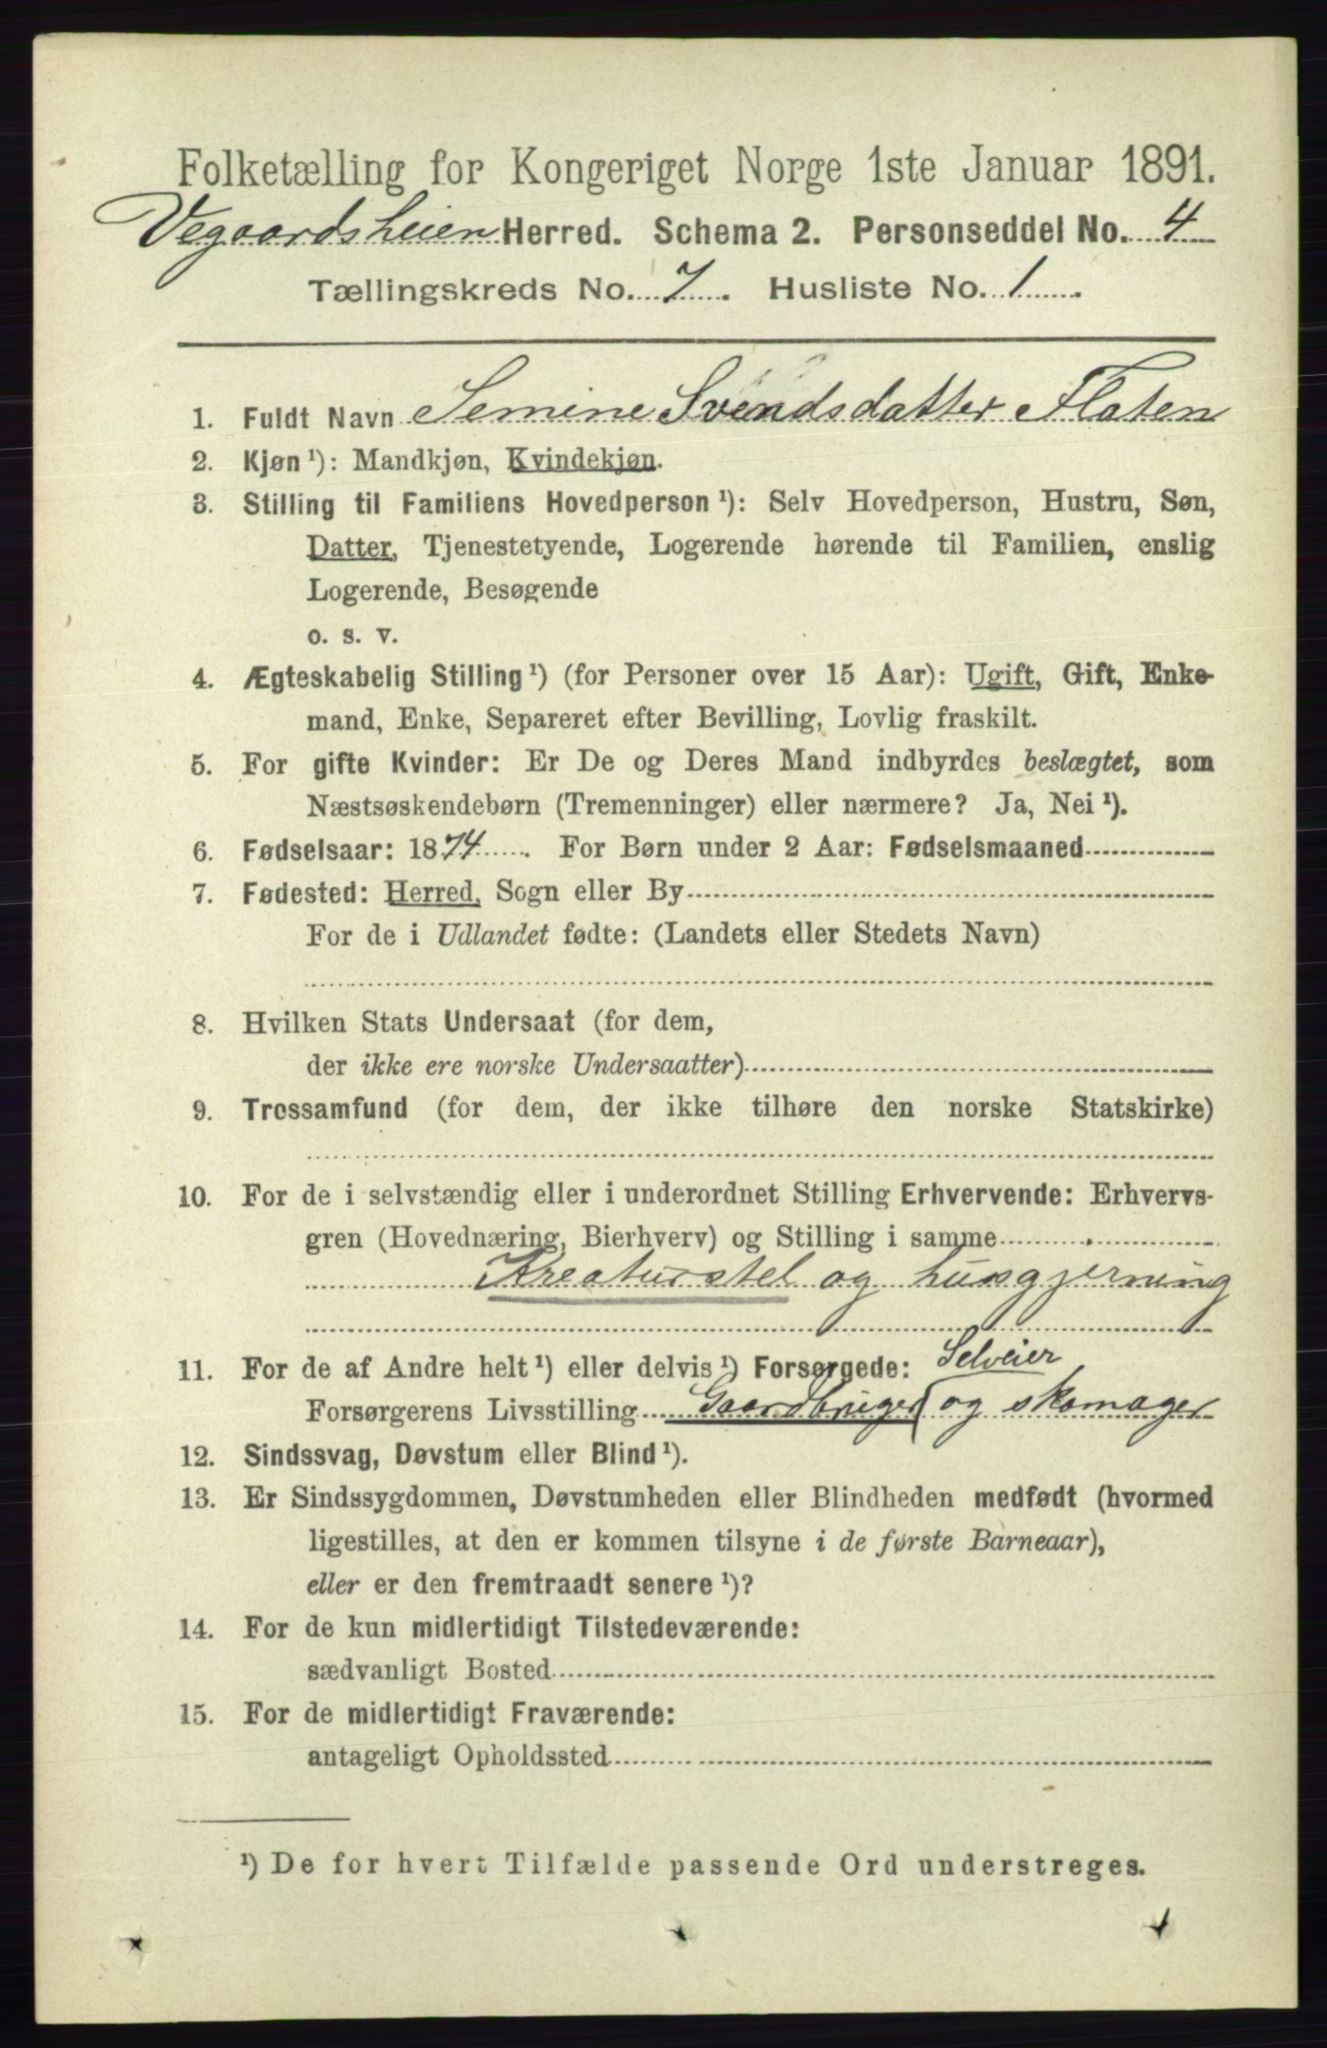 Folketælling for Kongeriget Norge 1ste Januar 1891.
Vegaardsheien Herred. Schema 2. Personseddel No. 4
Tællingskreds No. 7. Husliste No. 1.
1. Fuldt Navn Semine Svendsdatter Flaten
2. Kjøn ¹): Mandkjøn, Kvindekjøn.
3. Stilling til Familiens Hovedperson ¹): Selv Hovedperson, Hustru, Søn,
Datter, Tjenestetyende, Logerende hørende til Familien, enslig
Logerende, Besøgende
o. s. v.
4. Ægteskabelig Stilling ¹) (for Personer over 15 Aar): Ugift, Gift, Enke-
mand, Enke, Separeret efter Bevilling, Lovlig fraskilt.
5. For gifte Kvinder: Er De og Deres Mand indbyrdes beslægtet, som
Næstsøskendebørn (Tremenninger) eller nærmere? Ja, Nei ¹).
6. Fødselsaar: 1874. For Børn under 2 Aar: Fødselsmaaned
7. Fødested: Herred, Sogn eller By
For de i Udlandet fødte: (Landets eller Stedets Navn)
8. Hvilken Stats Undersaat (for dem,
der ikke ere norske Undersaatter)
9. Trossamfund (for dem, der ikke tilhøre den norske Statskirke)
10. For de i selvstændig eller i underordnet Stilling Erhvervende: Erhvervs-
gren (Hovednæring, Bierhverv) og Stilling i samme
Kreaturstel og husgjerning
11. For de af Andre helt ¹) eller delvis ¹) Forsørgede: Selveier
Forsørgerens Livsstilling Gaardbruger og skomager
12. Sindssvag, Døvstum eller Blind ¹).
13. Er Sindssygdommen, Døvstumheden eller Blindheden medfødt (hvormed
ligestilles, at den er kommen tilsyne i de første Barneaar),
eller er den fremtraadt senere ¹)?
14. For de kun midlertidigt Tilstedeværende:
sædvanligt Bosted
15. For de midlertidigt Fraværende:
antageligt Opholdssted
¹) De for hvert Tilfælde passende Ord understreges.